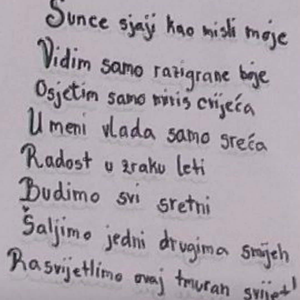 Sunce sjaji kao misli moje
Vidim samo razigrane boje
Osjetim samo miris cvijeća
U meni vlada samo sreća
Radost u zraku leti
Budimo svi sretni
Šaljimo jedni drugima smijeh
Rasvijetlimo ovaj tmuran svijet!